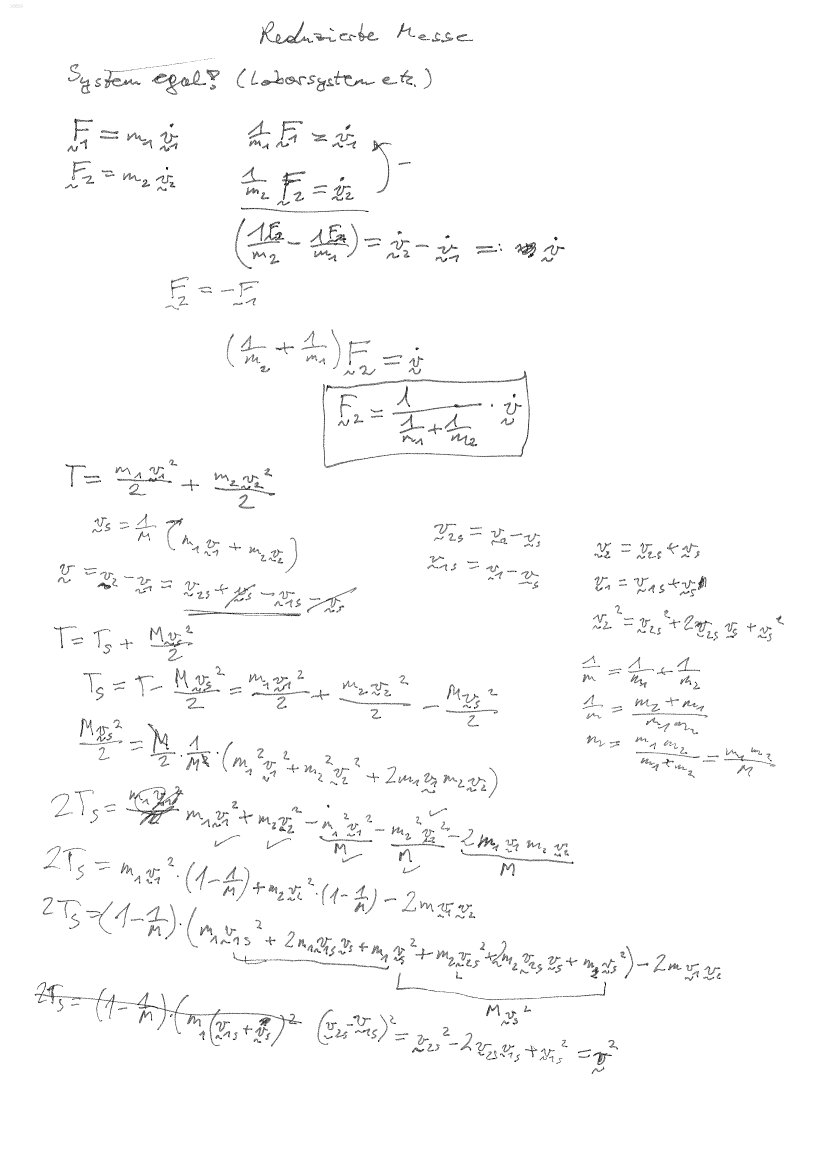 Reduzierte Masse
System egal? (Laborsystem etc.)
F₁ = m₁ v̇₁   1/m₁ F₁ = v̇₁
F₂ = m₂ v̇₂   1/m₂ F₂ = v̇₂   −
(1F₂/m₂ − 1F₁/m₁) = v̇₂ − v̇₁ =: v̇
F₂ = −F₁
(1/m₂ + 1/m₁) F₂ = v̇
F₂ = 1/(1/m₁ + 1/m₂) · v̇
T = m₁v₁²/2 + m₂v₂²/2
vₛ = 1/M (m₁v₁ + m₂v₂)
v = v₂ − v₁ = v₂ₛ + vₛ − v₁ₛ − vₛ
v₂ₛ = v₂ − vₛ
v₁ₛ = v₁ − vₛ
v₂ = v₂ₛ + vₛ
v₁ = v₁ₛ + vₛ
v₂² = v₂ₛ² + 2v₂ₛ vₛ + vₛ²
1/m = 1/m₁ + 1/m₂
1/m = (m₂ + m₁)/(m₁m₂)
m = m₁m₂/(m₁+m₂) = m₁m₂/M
T = Tₛ + Mvₛ²/2
Tₛ = T − Mvₛ²/2 = m₁v₁²/2 + m₂v₂²/2 − Mvₛ²/2
Mvₛ²/2 = M/2 · 1/M² · (m₁²v₁² + m₂²v₂² + 2m₁v₁m₂v₂)
2Tₛ = m₁v₁² + m₂v₂² − m₁²v₁²/M − m₂²v₂²/M − 2m₁v₁m₂v₂/M
2Tₛ = m₁v₁² · (1 − 1/M) + m₂v₂² · (1 − 1/M) − 2mv₁v₂
2Tₛ = (1 − 1/M) · (m₁v₁ₛ² + 2m₁v₁ₛvₛ + m₁vₛ² + m₂v₂ₛ² + 2m₂v₂ₛvₛ + m₂vₛ²) − 2mv₁v₂
Mvₛ²
2Tₛ = (1 − 1/M) · (m₁(v₁ₛ + vₛ)²   (v₂ₛ − v₁ₛ)² = v₂ₛ² − 2v₂ₛv₁ₛ + v₁ₛ² = v²